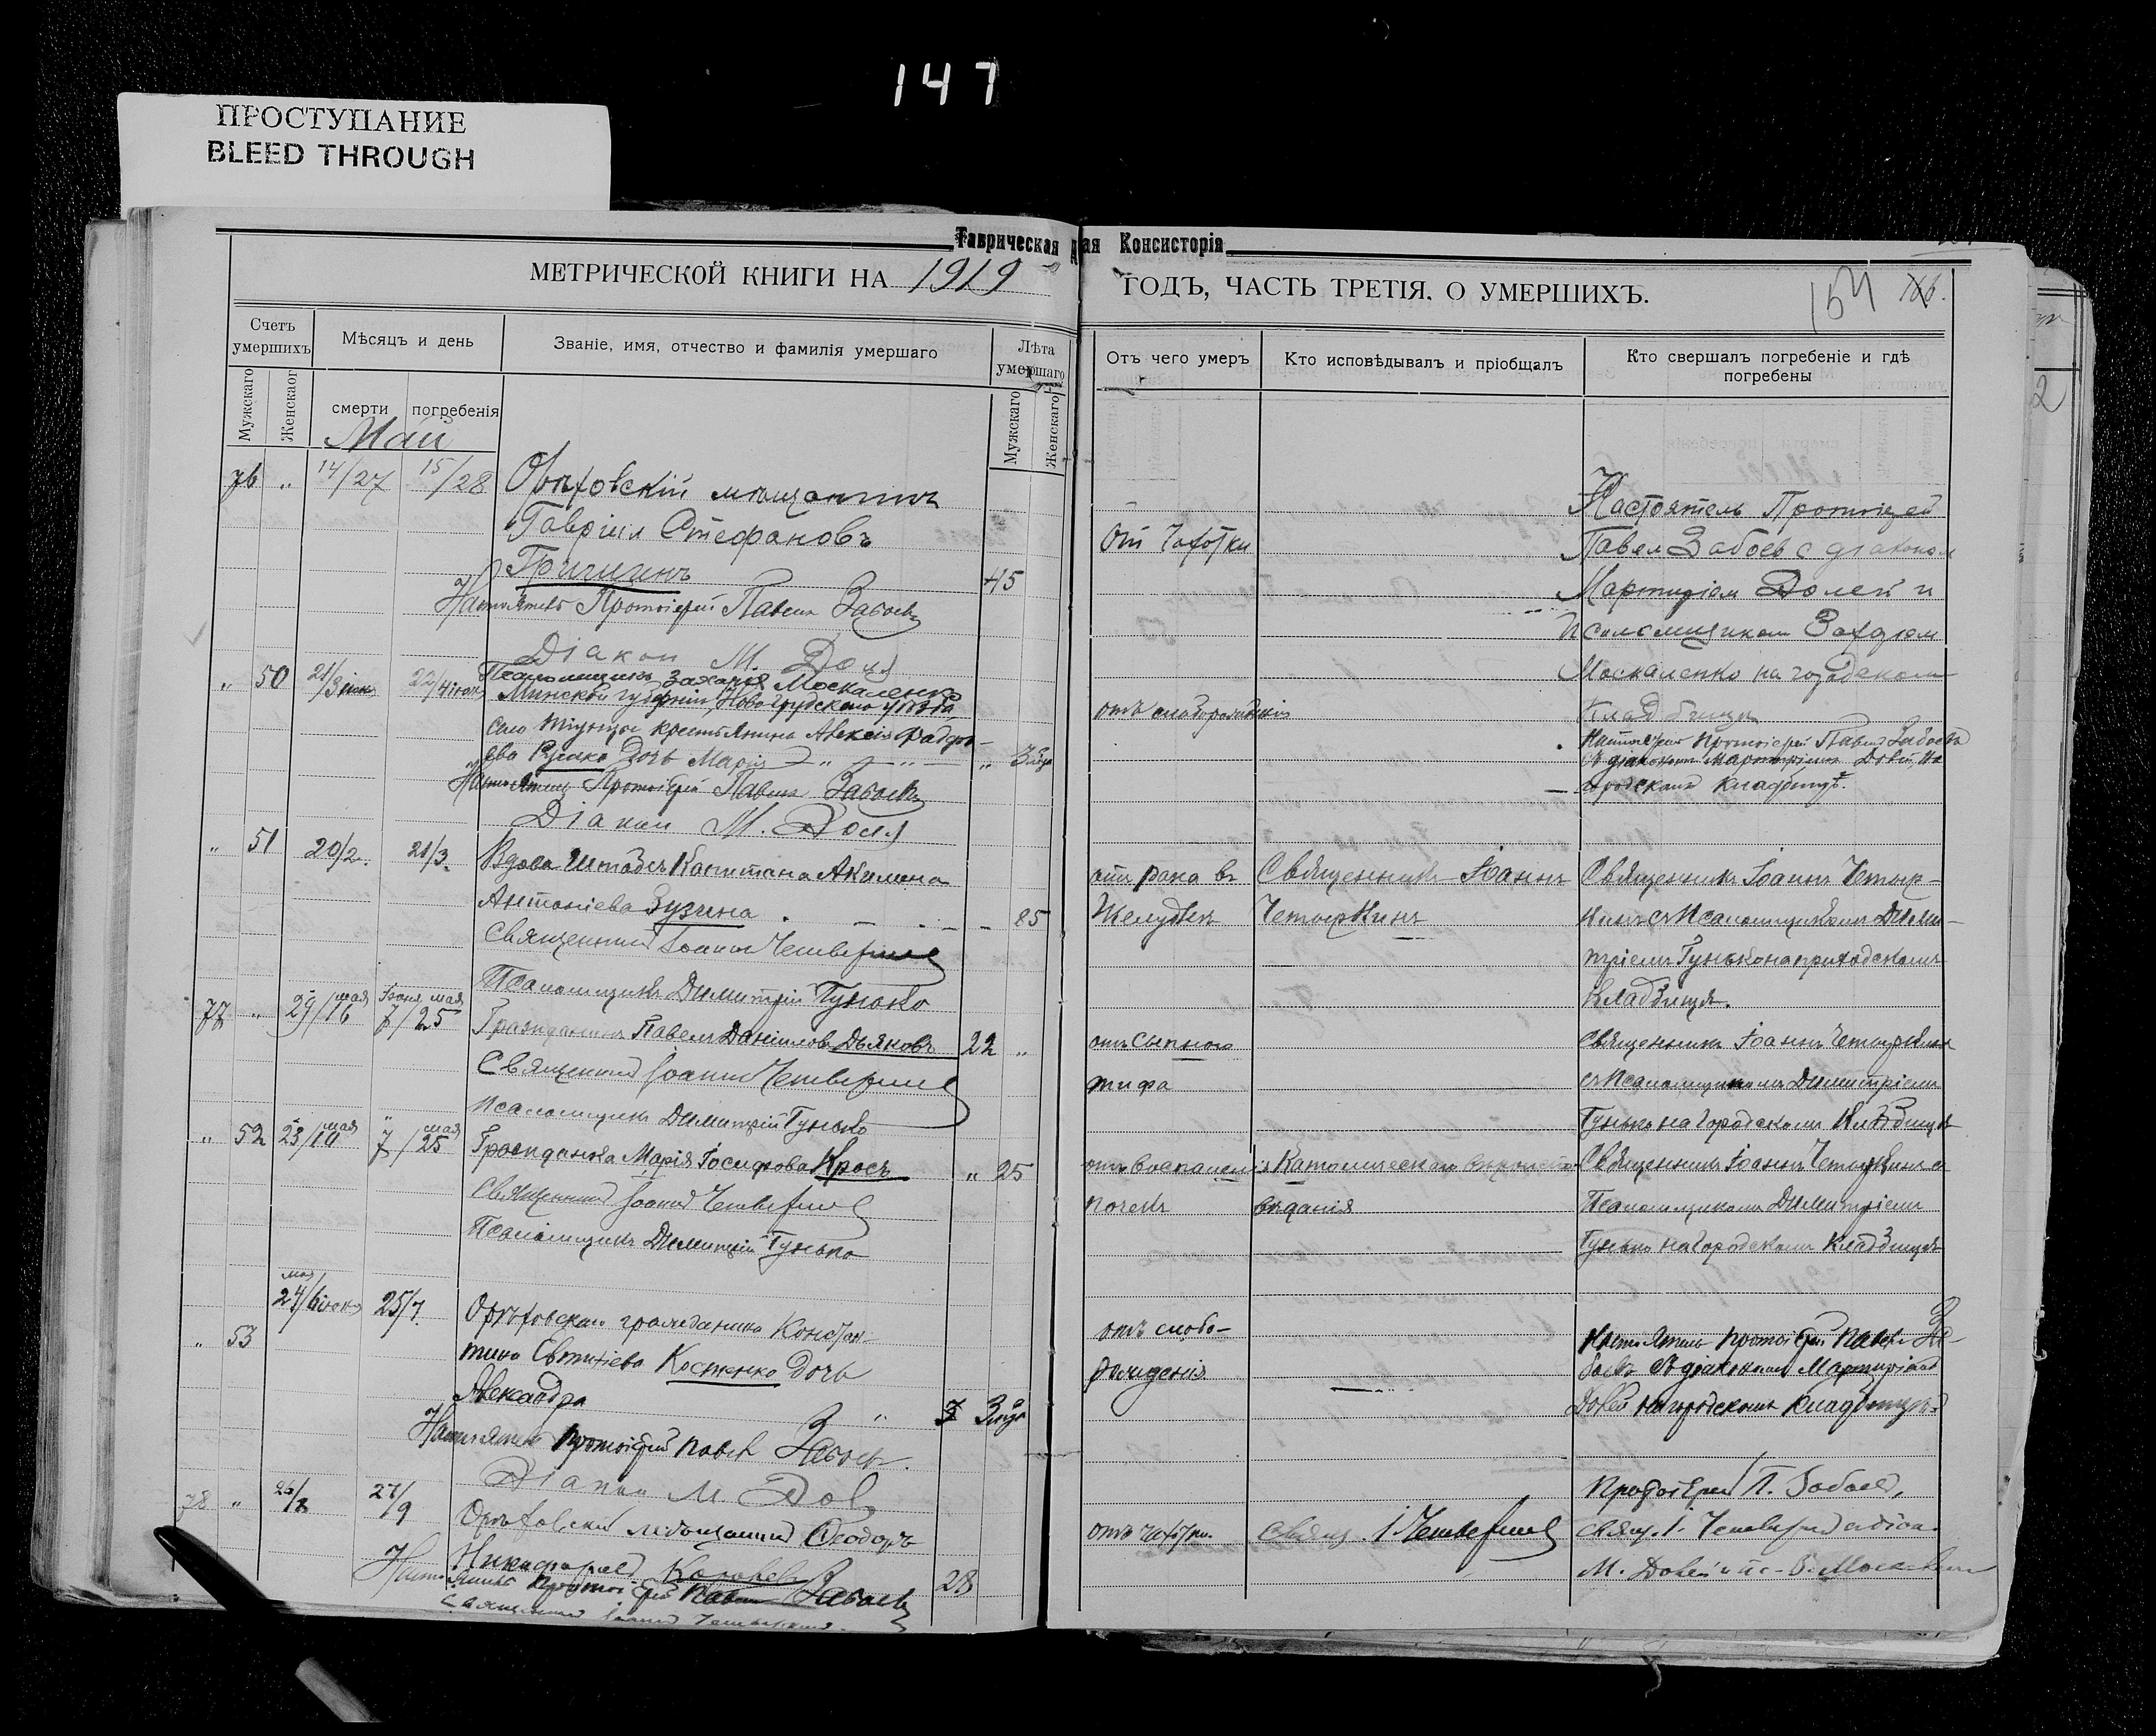 147
ПРОСТУПАНИЕ
BLEED THROUGH
Таврическая ая Консисторія
МЕТРИЧЕСКОЙ КНИГИ НА 1919
ГОДЪ, ЧАСТЬ ТРЕТІЯ. О УМЕРШИХЪ.
164
166.
Счетъ умершихъ
Мѣсяцъ и день
Званіе, имя, отчество и фамилія умершаго
Лѣта умершаго
Отъ чего умеръ
Кто исповѣдывалъ и пріобщалъ
Кто свершалъ погребеніе и гдѣ погребены
Мужскаго
Женскаог
смерти
погребенія
Мужскаго
Женскаго
Май
76 " 14/27 15/28 Орѣховскій мѣщанинъ
Гавріил Стефановъ
45
Настоятель Протоіерей Павелъ Забоевъ
Діакон М. Доля
От чахотки
Настоятель Протоіерей
Павел Забоев с діаконом
Мартиріем Долей и
Псаломщиком Захаріем
Москаленко на городском
кладбищѣ
" 50 21/3 іюня 22/4 іюня Псаломщикъ Захарія Москаленко
Минской губерніи, Новогрудскаго уѣзда,
крестьянина Алексія
дочь Марія " "
Настоятель Протоіерей Павелъ Забоевъ
Діакон М. Доля
отъ слаборожденія
Настоятель Протоіерей Павелъ Забоевъ
съ діакономъ Мартиріемъ Долей, на
городскомъ кладбищѣ.
" 51 20/2. 21/3. Вдова Штабсъ Капитана Акилина
Антоніева Зузина 85
Священникъ Іоаннъ Четверкинъ
Псаломщикъ Димитрій Гунько
отъ рака въ
желудкѣ
Священникъ Іоаннъ
Четыркинъ
Священникъ Іоаннъ Четыр-
кинъ съ Псаломщикомъ Дими-
тріемъ Гунько на приходскомъ
кладбищѣ.
77 " 29/16 мая Іюня мая 7/25 Гражданинъ Павелъ Даніиловъ Дьяковъ 22 "
Священникъ Іоаннъ Четверкинъ
Псаломщикъ Димитрій Гунько
отъ сыпного
тифа
Священникъ Іоаннъ Четыркинъ
съ Псаломщикомъ Димитріемъ
Гунько на городскомъ кладбищѣ
" 52 23/10 мая " 7/25 мая Гражданка Марія Іосифова Кросъ " 25
Священникъ Іоаннъ Четверкинъ
Псаломщикъ Димитрій Гунько
отъ воспаленія
почекъ
Католическаго вѣроиспо-
вѣданія
Священникъ Іоаннъ Четыркинъ съ
Псаломщикомъ Димитріемъ
Гунько на городскомъ кладбищѣ
" 53 мая 24/6 іюня 25/7. Орѣховскаго гражданина Констан-
тина Евтихіева Костенко дочь
Александра "
Настоятель Протоіерей Павелъ Забоевъ.
Діакон М. Доля
отъ слабо-
рожденія
Настоятель Протоіерей Павелъ За-
боевъ съ діакономъ Мартиріемъ
Долей на городскомъ кладбищѣ
78 " 26/8 27/9 Орѣховскій мѣщанинъ Ѳеодоръ
28
Настоятель Протоіерей Павелъ Забоевъ
Священникъ Іоаннъ Четверкинъ.
отъ чахотки.
Священ. І. Четверкинъ
Протоіерей П. Забоевъ,
свящ. І. Четверкинъ
М. Долей
2